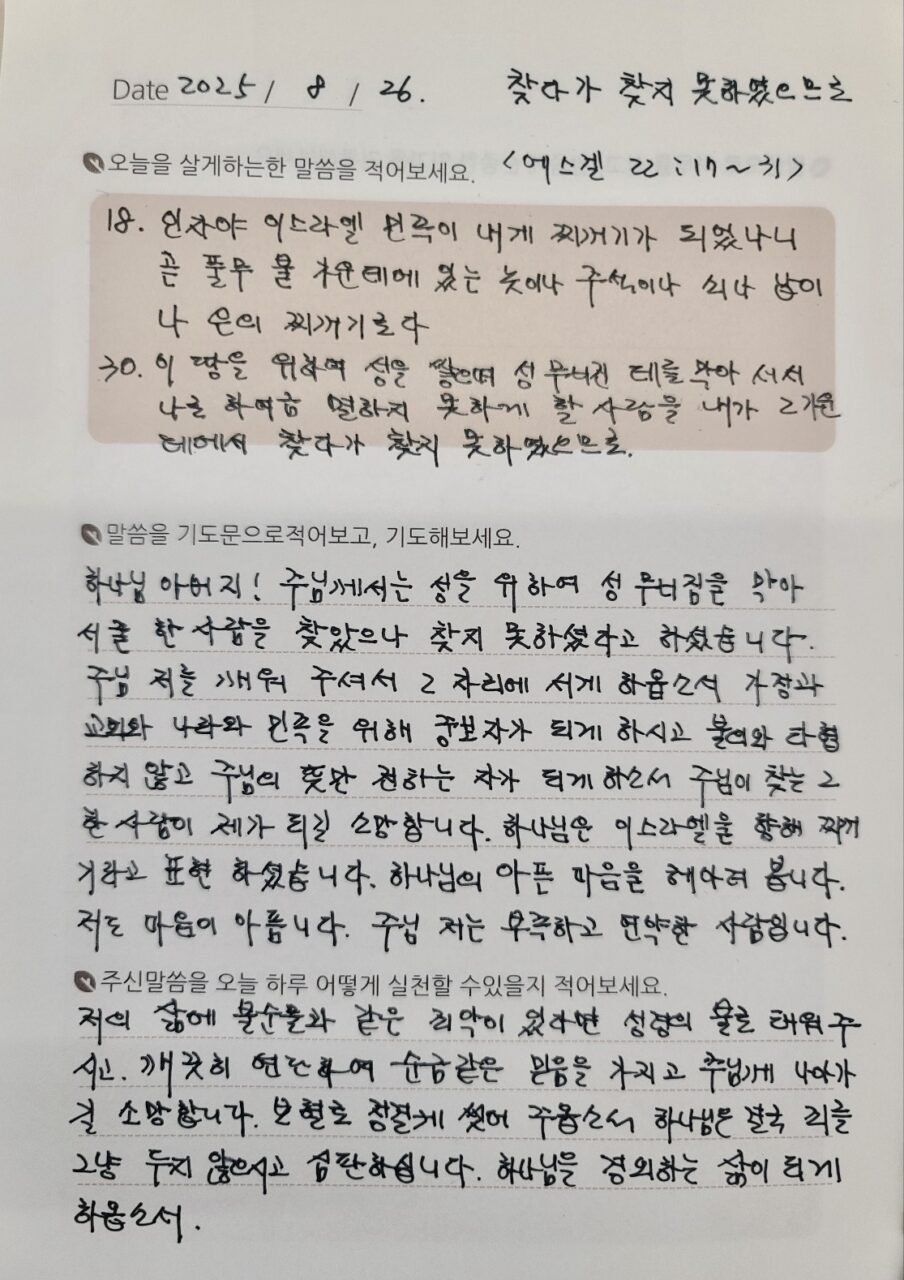 Date 2025 / 8 / 26. 찾다가 찾지 못하였으므로
오늘을 살게하는한 말씀을 적어보세요. <에스겔 22:17~31>
18. 인자야 이스라엘 민족이 내게 찌꺼기가 되었나니
곧 풀무 불 가운데에 있는 놋이나 주석이나 쇠나 납이
나 은의 찌꺼기로다
30. 이 땅을 위하여 성을 쌓으며 성 무너진 데를 막아 서서
나로 하여금 멸하지 못하게 할 사람을 내가 그 가운
데에서 찾다가 찾지 못하였으므로.
말씀을 기도문으로적어보고, 기도해보세요.
하나님 아버지! 주님께서는 성을 위하여 성 무너짐을 막아
서 줄 한 사람을 찾았으나 찾지 못하셨다고 하셨습니다.
주님 저를 깨워 주셔서 그 자리에 서게 하옵소서 가정과
교회와 나라와 민족을 위해 중보자가 되게 하시고 불의와 타협
하지 않고 주님의 뜻만 전하는 자가 되게 하소서 주님이 찾는 그
한 사람이 제가 되길 소망합니다. 하나님은 이스라엘을 향해 찌꺼
기라고 표현 하셨습니다. 하나님의 아픈 마음을 헤아려 봅니다.
저도 마음이 아픕니다. 주님 저는 부족하고 연약한 사람입니다.
주신말씀을 오늘 하루 어떻게 실천할 수있을지 적어보세요.
저의 삶에 불순물과 같은 죄악이 있다면 성령의 불로 태워 주
시고. 깨끗히 연단하여 순금같은 믿음을 가지고 주님께 나아가
길 소망합니다. 보혈로 정결케 씻어 주옵소서 하나님은 결국 죄를
그냥 두지 않으시고 심판하십니다. 하나님을 경외하는 삶이 되게
하옵소서.